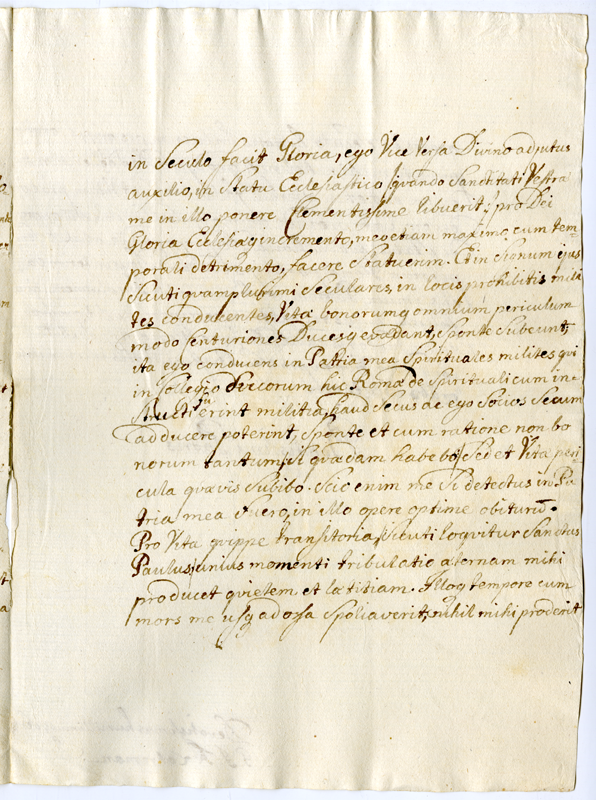 in Seculo facit Gloria, ego Vice Versa Divino adjutus
auxilio, in Statu Ecclesiastico (quando Sanctitati Vestra
me in illo ponere Clementissime libuerit) pro Dei
Gloria Ecclesiæq incremento, meo etiam maximo cum tem
porali detrimento, facere Statuerim. Et in signum ejus
Sicuti quamplurimi Seculares, in locis prohibitis mili
tes conducentes, Vitæ bonorumq omnium periculum
modo Centuriones Ducesq evadant, sponte Subeunt;
ita ego conducens in Patria mea Spirituales milites qui
in Collegio Græcorum hic Romæ de Spirituali cum in
Structi fu erint militia, haud Secus ac ego Socios Secum
adducere poterint, sponte et cum ratione non bo
norum tantum, si quædam habebo, Sed et Vitæ peri
cula quævis Subibo. Scio enim me Si detectus in Pa
tria mea fuero, in illo opere optime obiturū.
Pro Vita quippe transitoria, sicuti loquitur Sanctus
Paulus, unius momenti tribulatio æternam mihi
producet quietem et lætitiam. Illoq tempore cum
mors me usq ad ossa Spoliaverit, nihil mihi proderit